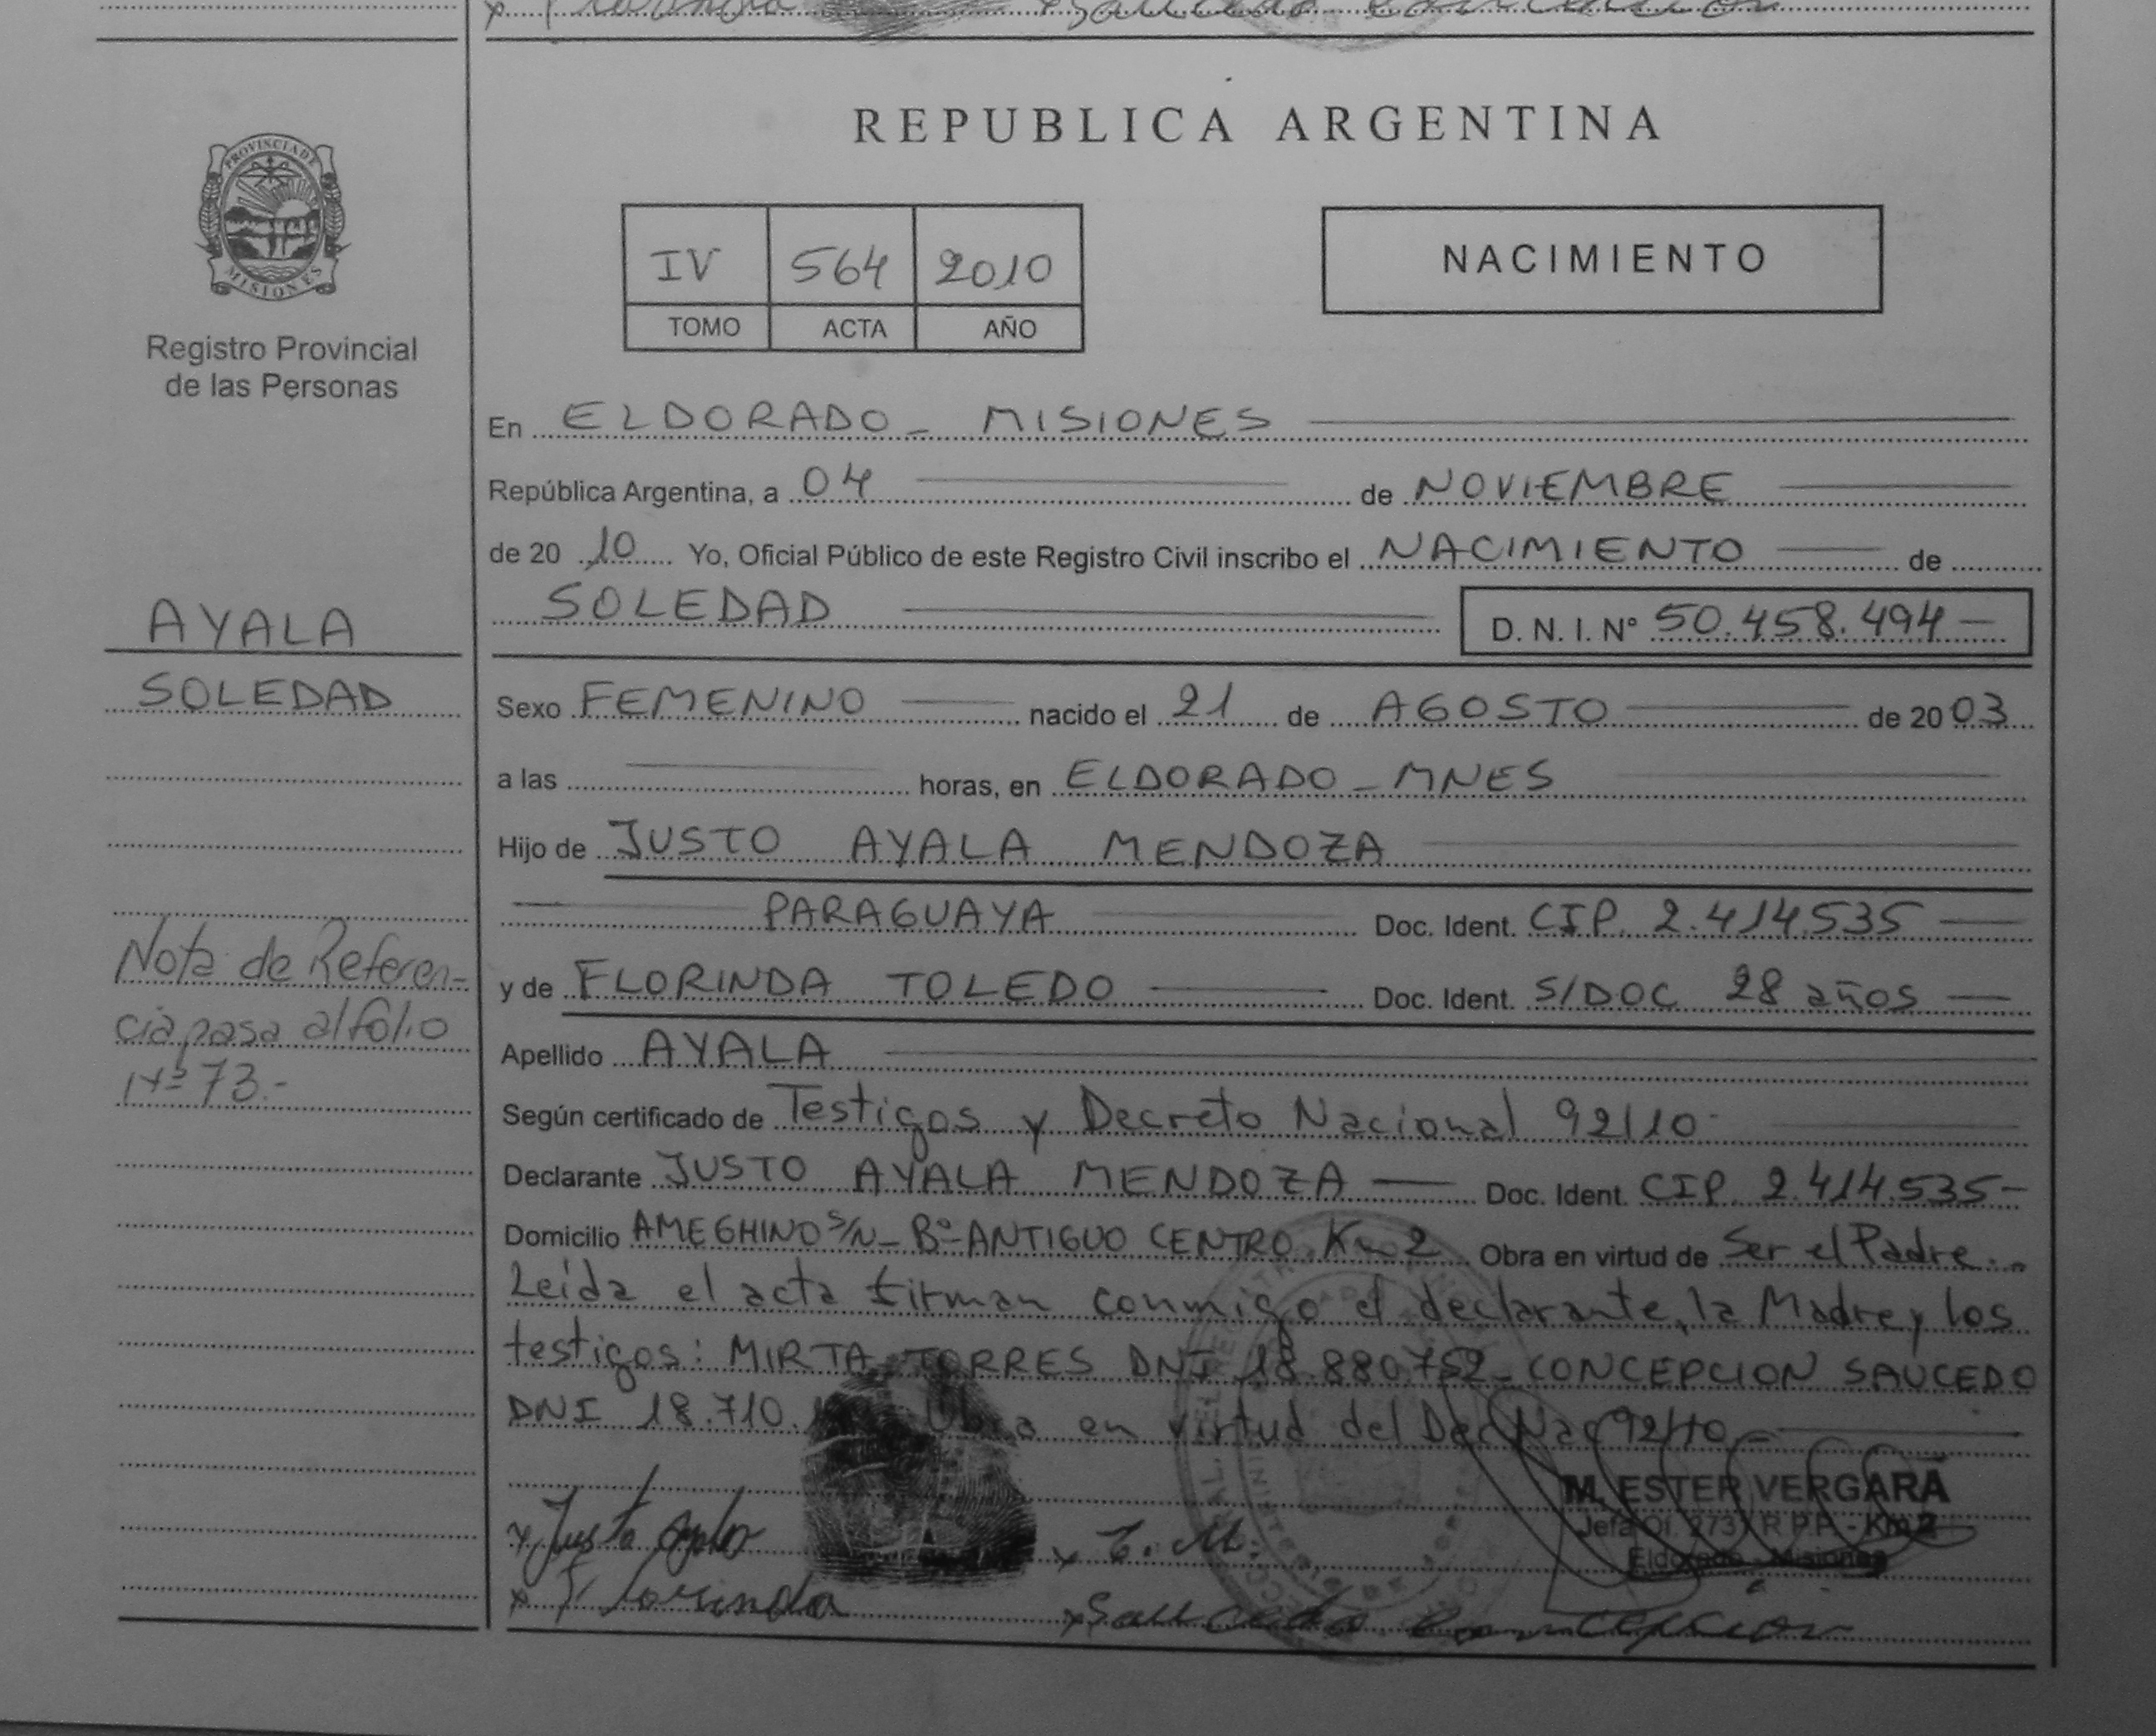 REPUBLICA ARGENTINA
PROVINCIA DE
MISIONES
Registro Provincial
de las Personas
IV 564 2010
TOMO ACTA AÑO
NACIMIENTO
En ELDORADO - MISIONES
República Argentina, a 04 de NOVIEMBRE
de 20 10 Yo, Oficial Público de este Registro Civil inscribo el NACIMIENTO de
SOLEDAD D. N. I. Nº 50.458.494-
AYALA
SOLEDAD
Sexo FEMENINO nacido el 21 de AGOSTO de 20 03
a las horas, en ELDORADO - MNES
Hijo de JUSTO AYALA MENDOZA
PARAGUAYA Doc. Ident. CIP. 2.414.535
y de FLORINDA TOLEDO Doc. Ident. S/DOC 28 años
Apellido AYALA
Nota de Referen-
cia pasa al folio
Nº 73.-
Según certificado de Testigos y Decreto Nacional 92/10-
Declarante JUSTO AYALA MENDOZA Doc. Ident. CIP. 2.414.535-
Domicilio AMEGHINO S/N - Bº ANTIGUO CENTRO. Km 2 Obra en virtud de Ser el Padre.-
Leída el acta firman conmigo el declarante, la Madre y los
testigos: MIRTA TORRES DNI 18.880.752 - CONCEPCION SAUCEDO
DNI 18.710. en virtud del Dec Nac 92/10
M. ESTER VERGARA
Jefa Of. 273 R.P.P. - Km 2
Eldorado - Misiones
x Justo Ayala x T. M.
x Florinda x Saucedo Concepcion